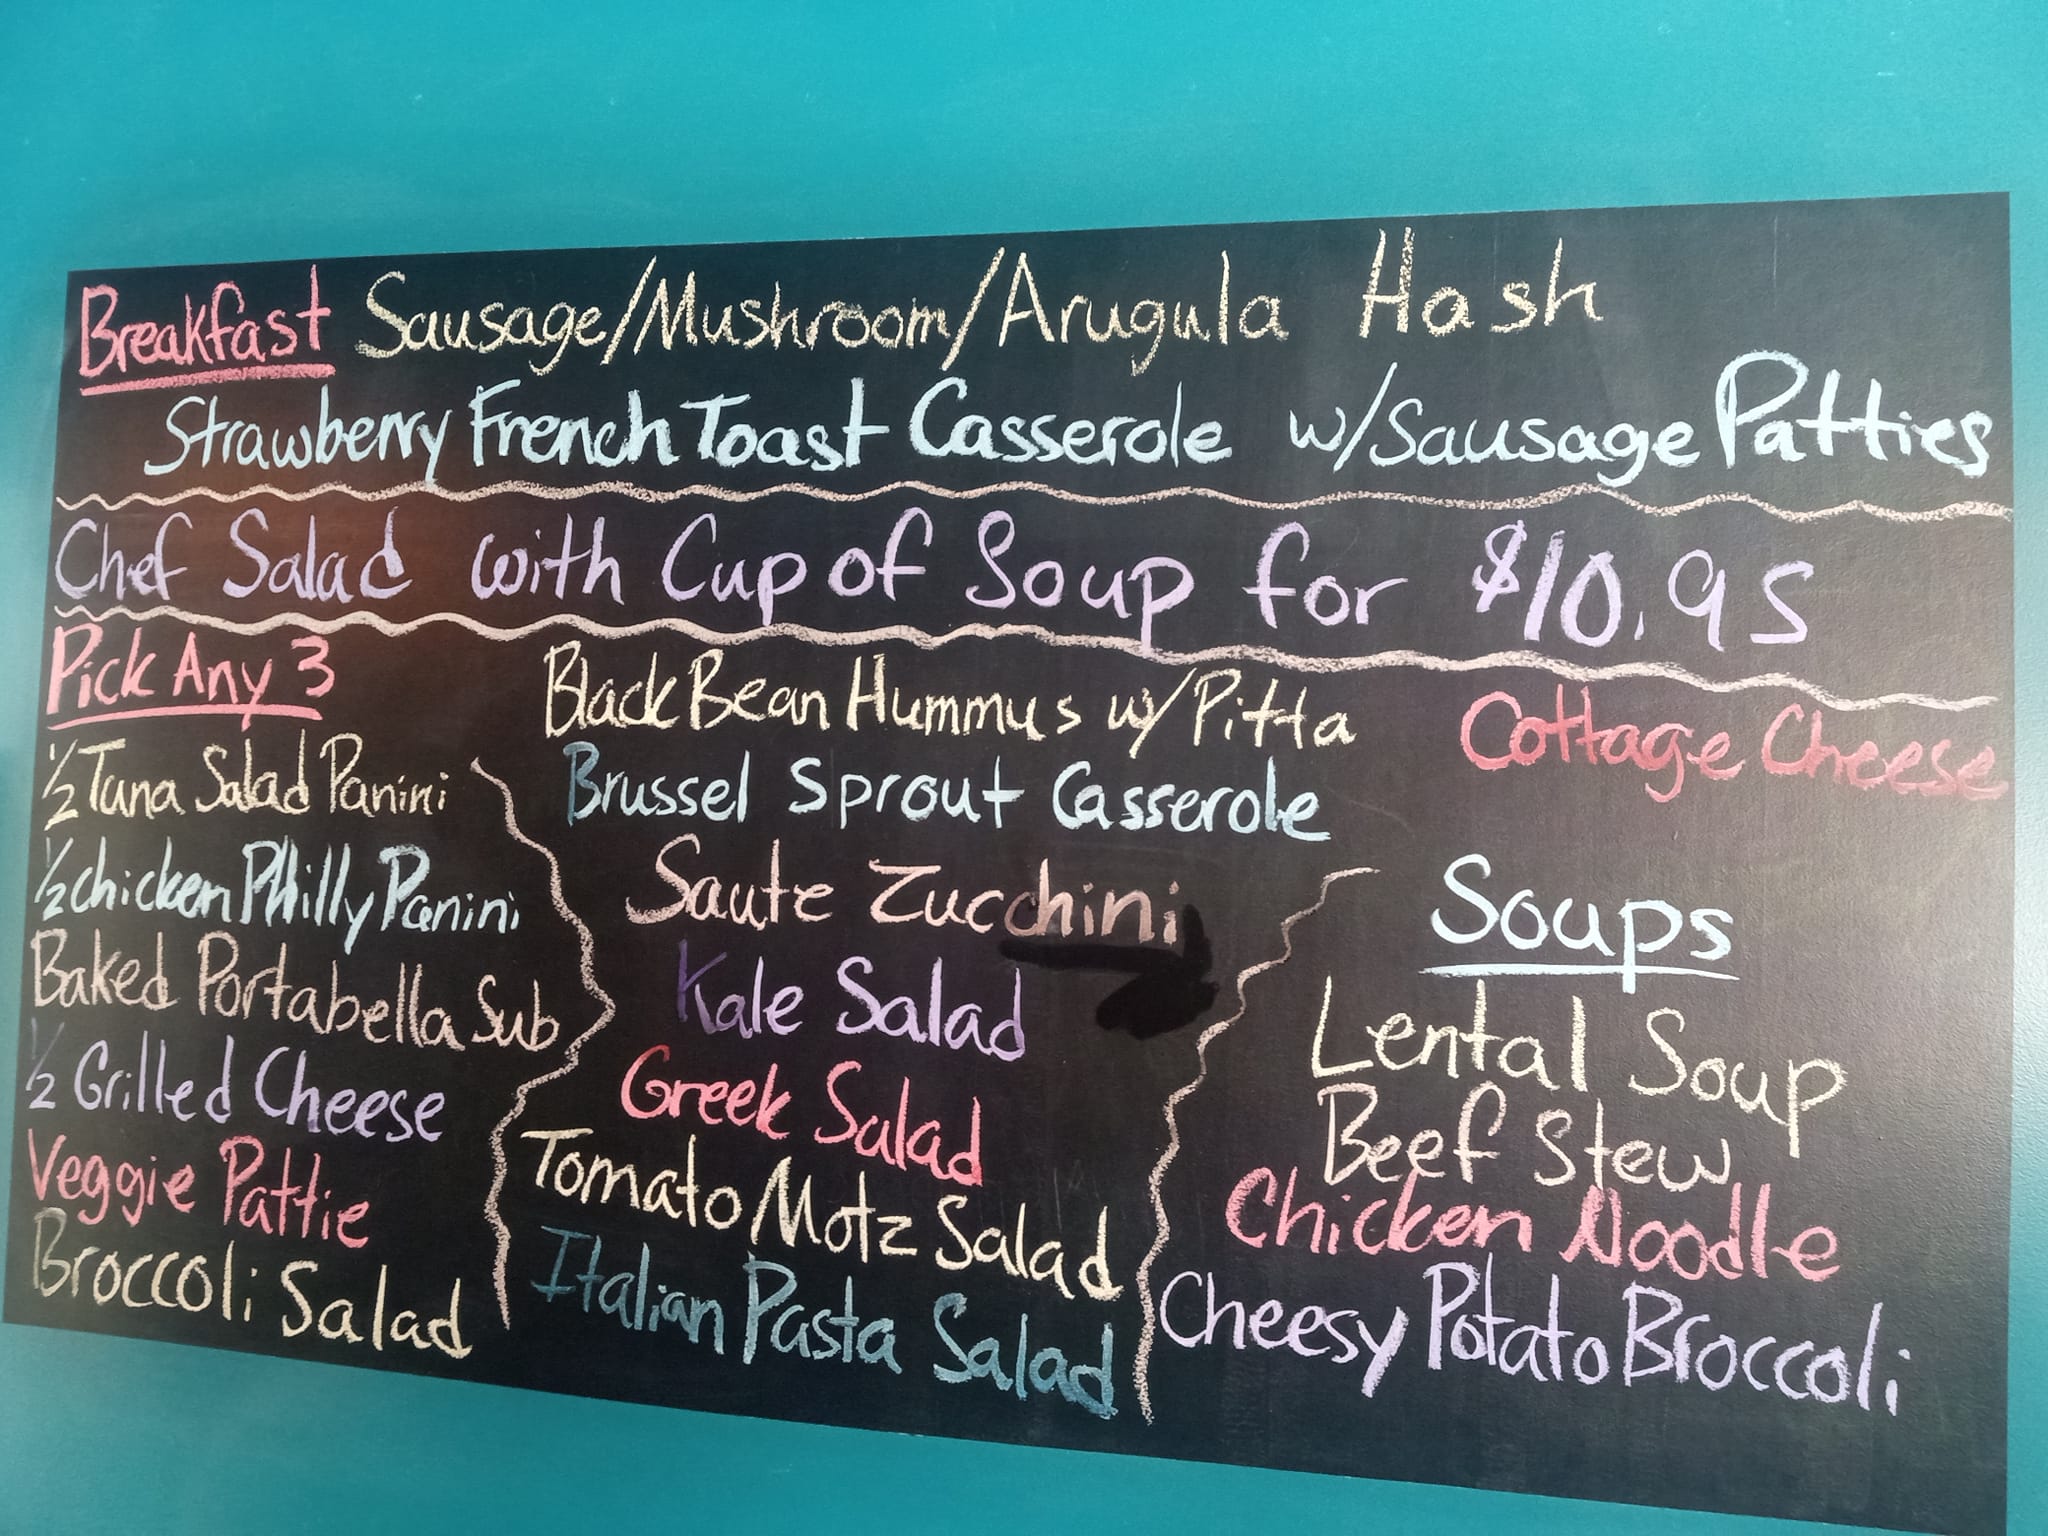 Breakfast Sausage/Mushroom/Arugula Hash
Strawberry French Toast Casserole w/Sausage Patties
Chef Salad with Cup of Soup for $10.95
Pick Any 3
1/2 Tuna Salad Panini
1/2 chicken Philly Panini
Baked Portabella Sub
1/2 Grilled Cheese
Veggie Pattie
Broccoli Salad
Black Bean Hummus w/Pitta
Brussel Sprout Casserole
Saute Zucchini
Kale Salad
Greek Salad
Tomato Motz Salad
Italian Pasta Salad
Cottage Cheese
Soups
Lental Soup
Beef Stew
Chicken Noodle
Cheesy Potato Broccoli